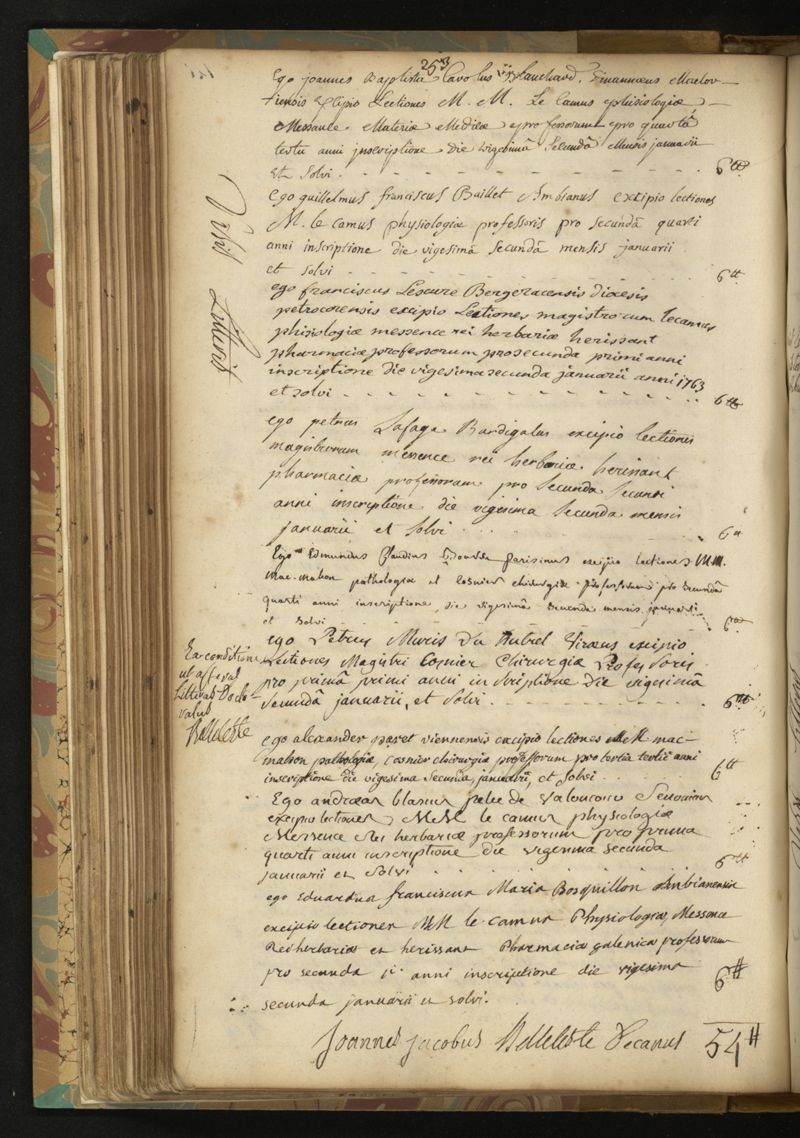 253
Ego joannes Baptista Carolus Blanchard,
excipio Lectiones M. M. Le Camus phisiologiæ
Messence Materiæ Medicæ professorum pro quarta
anni inscriptione die vigesimâ Secundâ Mensis januarii
Et Solvi 6tt
ego guillelmus franciscus Baillet Ambianus excipio lectiones
M. le camus physiologiæ professoris pro secundâ quarti
anni inscriptione die vigesimâ secundâ mensis januarii
et solvi 6tt
Visis Litteris
ego franciscus Lescure Bergeracensis diocesis
petrocorensis excipio Lectiones magistrorum lecamus
phisiologiæ messence rei herbariæ herissant
pharmaciæ professorum pro secunda primi anni
inscriptione die vigesima secunda januarii anni 1763
et solvi 6tt
ego petrus Lafage Burdigalus excipio lectiones
magistrorum messence rei herbariæ herissant
pharmaciæ professorum pro Secunda Secundi
anni inscriptione die vigesima Secunda mensis
januarii et Solvi 6tt
Ego Edmundus Claudius parisinus excipio lectiones MM.
Mac-mahon pathologiæ et Cosnier chirurgiæ professorum pro secundâ
quarti anni inscriptione, die vigesimâ secunda mensis januarii
et solvi 6tt
Ea conditione
ut afferat
Litteras Docto-
ratus
Belleteste
ego Petrus Muris Du Aubrel Viræus excipio
Lectiones Magistri Cosnier Chirurgiæ Professoris
pro primâ primi anni inscriptione Die vigesimâ
Secundâ januarii, et Solvi 6tt
ego alexander paret viennensis excipio lectiones M.M. mac-
mahon pathologiæ, cosnier chirurgiæ professorum pro tertia tertii anni
inscriptione die vigesima Secunda, januarii, et Solvi 6tt
Ego andræas blasius de Senonius
excipio lectiones MM. le camus physiologiæ
Messence Rei herbariæ professorum pro prima
quarti anni inscriptione die vigesima secunda
januarii et Solvi 6tt
ego Eduardus franciscus Maria Bosquillon Ambianensis
excipio lectiones MM le camus Physiologiæ, Messence
Rei herbariæ et herissant Pharmaciæ galenicæ professorum
pro secunda 1i anni inscriptione die vigesima
secunda januarii et solvi. 6tt
Joannes jacobus Belleteste Decanus 54tt